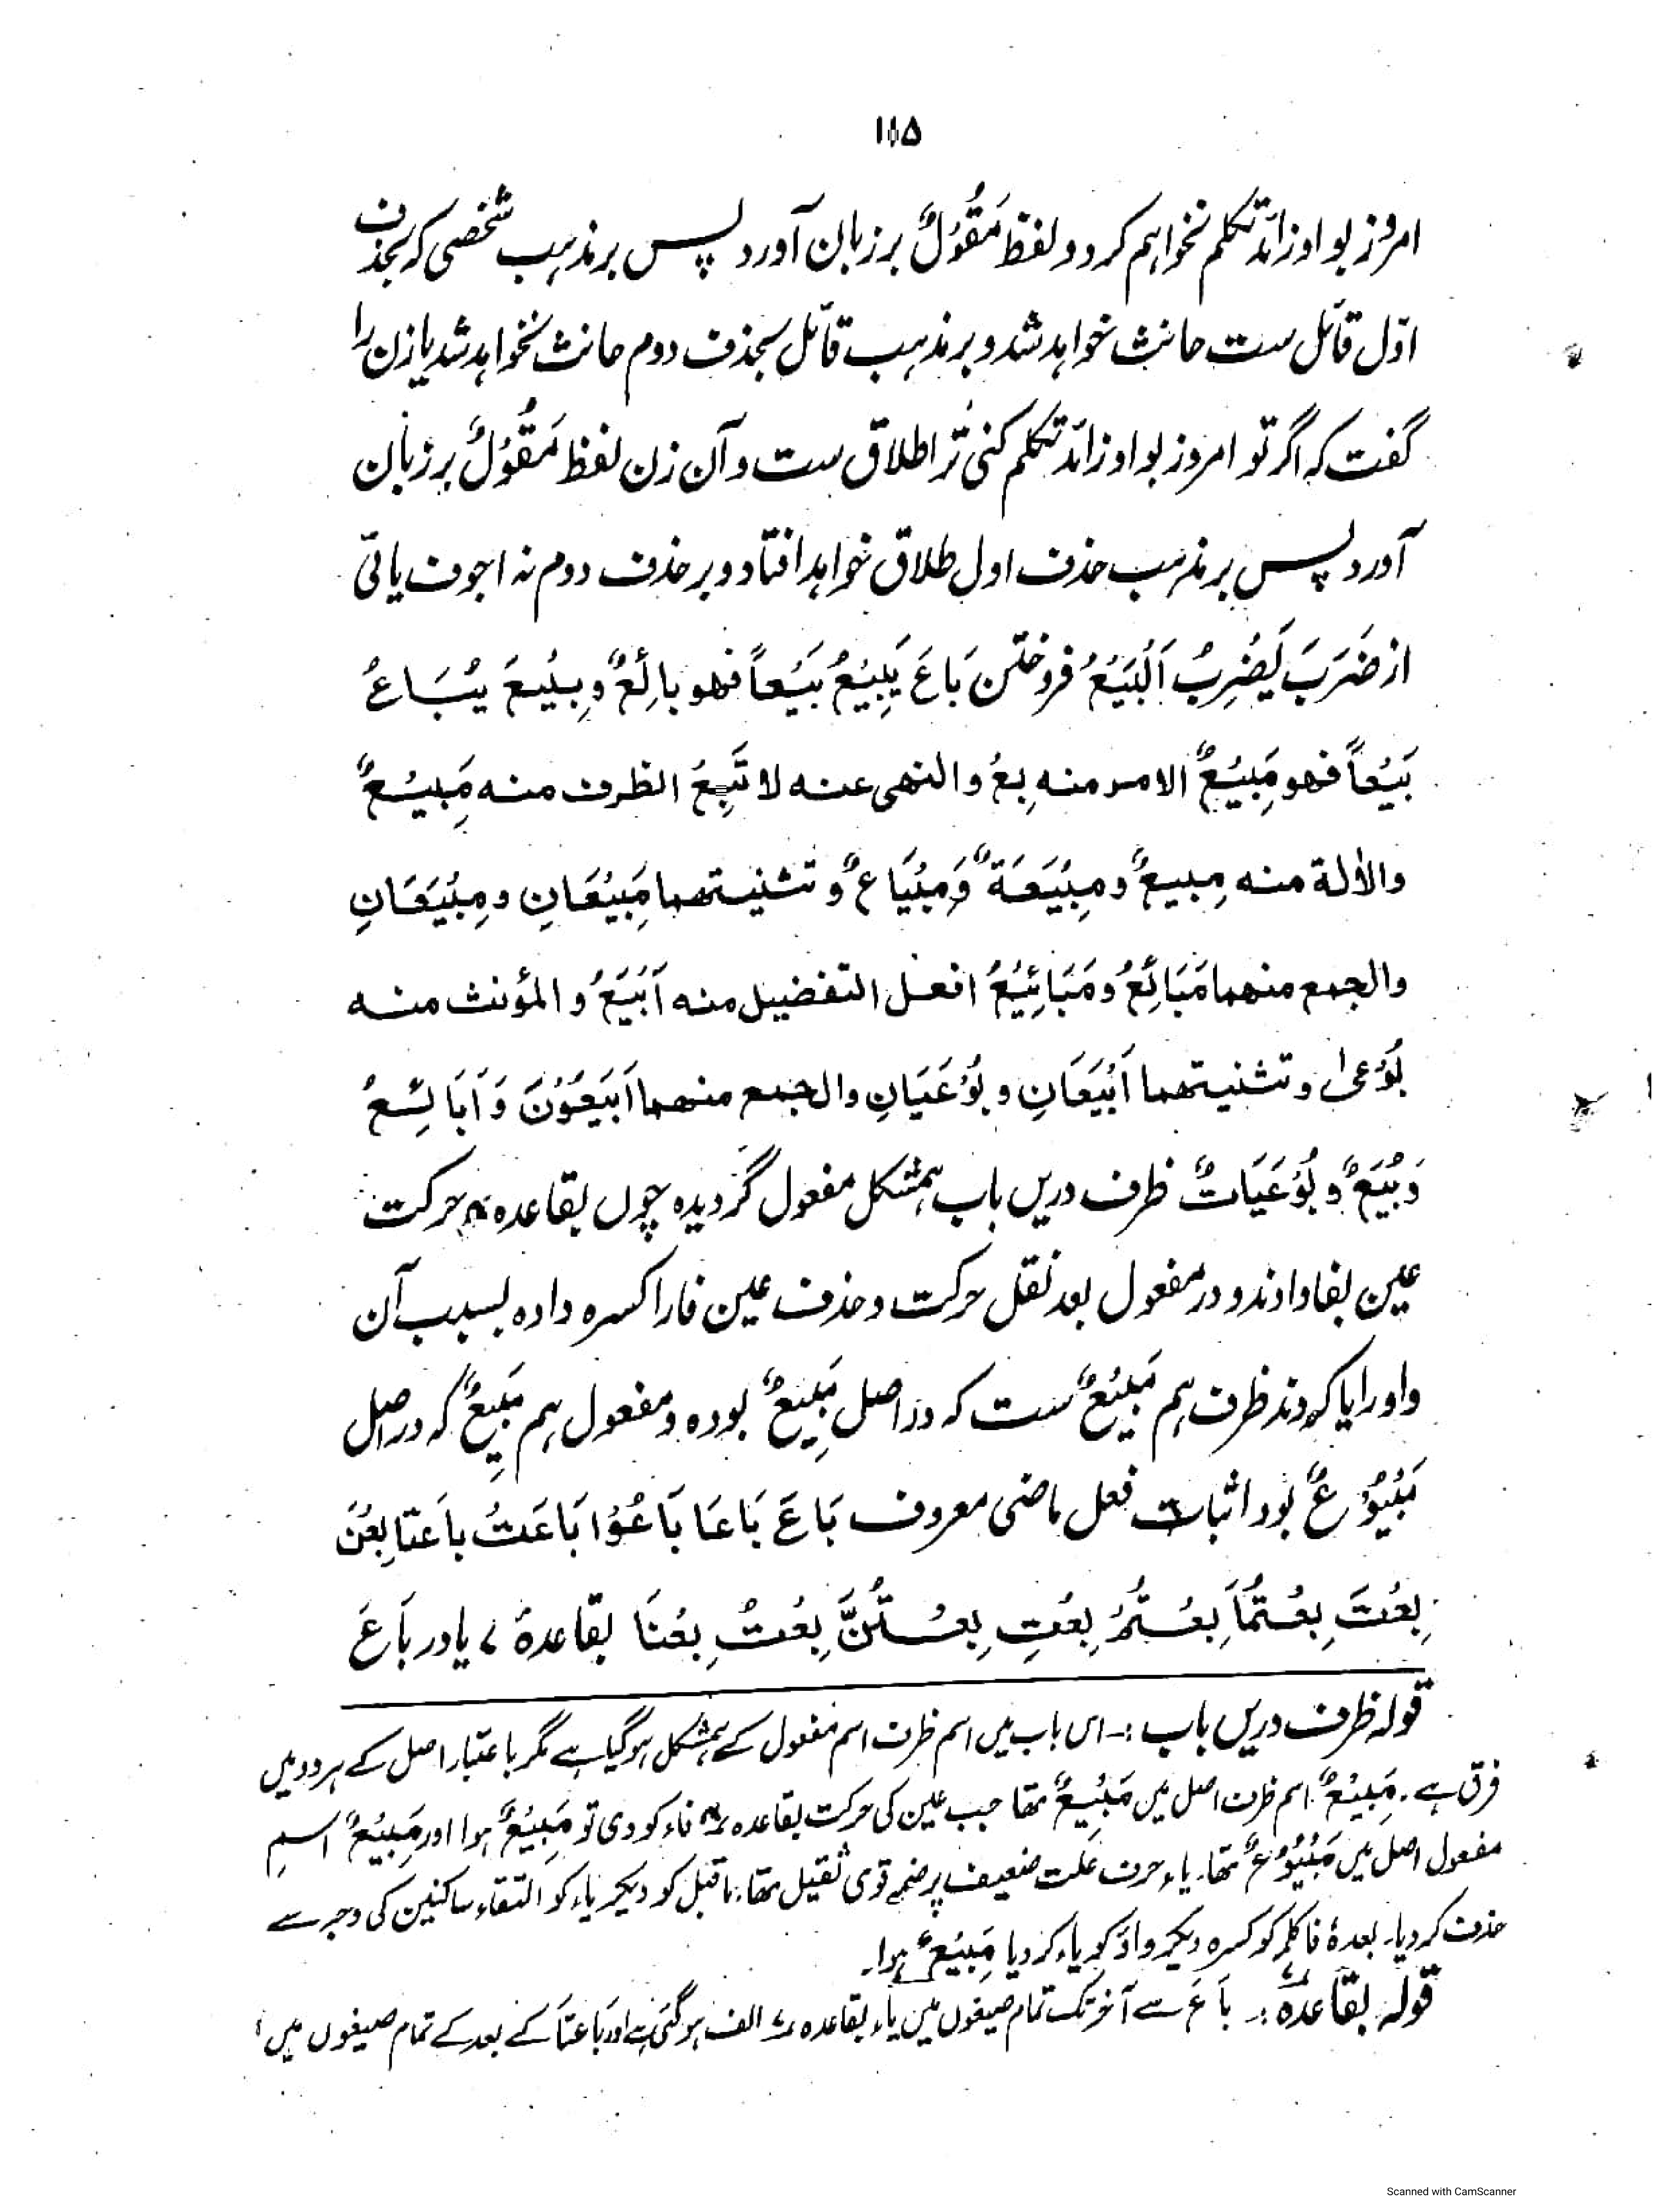 ۱۱۵
امروز بواو زائد تکلم نخواہم کرد و لفظ مَقُوْلٌ بر زبان آورد پس بر مذہب شخصی کہ بحذف
اوّل قائل ست حانث خواہد شد و بر مذہب قائل بحذف دوم حانث نخواہد شد یا زن را
گفت کہ اگر تو امروز بواو زائد تکلم کنی تُرا طلاق ست و آن زن لفظ مَقُوْلٌ بر زبان
آورد پس بر مذہب حذف اول طلاق خواہد افتاد و بر حذف دوم نہ اجوف یائی
از ضَرَبَ یَضْرِبُ اَلْبَیْعُ فروختن بَاعَ یَبِیْعُ بَیْعاً فهو بائِعٌ وبِیْعَ یُبَاعُ
بَیْعاً فهو مَبِیْعٌ الامر منه بِعْ والنهی عنه لا تَبِعْ الظرف منه مَبِیْعٌ
والاٰلة منه مِبیعٌ ومِبْیَعَةٌ وَمِبْیَاعٌ و تثنیتهما مَبِیْعَانِ ومِبْیَعَانِ
والجمع منهما مَبَائِعُ ومَبَائِیْعُ افعل التفضیل منه اَبْیَعُ والمؤنث منه
بُوْعیٰ و تثنیتهما اَبْیَعَانِ وبُوْعَیَانِ والجمع منهما اَبْیَعُوْنَ وَاَبَائِعُ
وَبُیَعٌ وبُوْعَیَاتٌ ظرف دریں باب ہمشکل مفعول گردیدہ چوں بقاعدہ ۸ حرکت
عین بفا دادند و در مفعول بعد نقل حرکت و حذف عین فا را کسرہ دادہ بسبب آن
واو را یا کردند ظرف ہم مَبِیْعٌ ست کہ در اصل مَبْیِعٌ بودہ و مفعول ہم مَبِیْعٌ کہ در اصل
مَبْیُوْعٌ بود اثبات فعل ماضی معروف بَاعَ بَاعَا بَاعُوْا بَاعَتْ باعَتَا بِعْنَ
بِعْتَ بِعْتُمَا بِعْتُمْ بِعْتِ بِعْتُنَّ بِعْتُ بِعْنَا بقاعدۂ ۷ یا در بَاعَ
قولہ ظرف دریں باب :- اس باب میں اسم ظرف اسم مفعول کے ہمشکل ہو گیا ہے مگر باعتبار اصل کے ہر دو میں
فرق ہے۔ مَبِیْعٌ اسم ظرف اصل میں مَبْیِعٌ تھا جب عین کی حرکت بقاعدہ ۸ فاء کو دی تو مَبِیْعٌ ہوا اور مَبِیْعٌ اسمِ
مفعول اصل میں مَبْیُوْعٌ تھا۔ یاء حرف علت ضعیف پر ضمہ قوی ثقیل تھا، ماقبل کو دیکر یاء کو التقاء ساکنین کی وجہ سے
حذف کر دیا۔ بعدہٗ فا کلمہ کو کسرہ دیکر واؤ کو یاء کر دیا مَبِیْعٌ ہوا۔
قولہ بقاعدہ ۷ :- بَاعَ سے آخر تک تمام صیغوں میں یاء بقاعدہ ۷ الف ہو گئی ہے اور بَاعَتَا کے بعد کے تمام صیغوں میں
Scanned with CamScanner